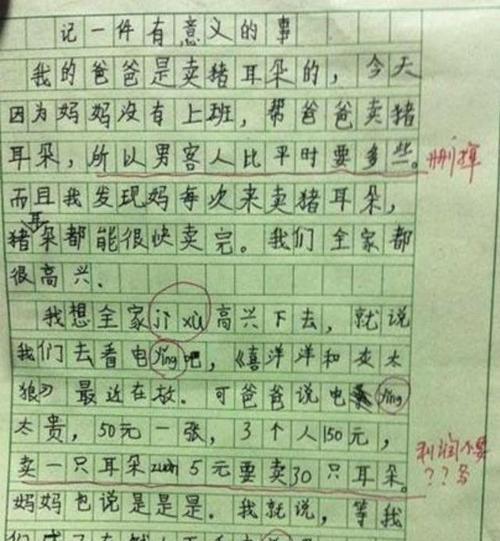 记一件有意义的事
我的爸爸是卖猪耳朵的，今天
因为妈妈没有上班，帮爸爸卖猪
耳朵，所以男客人比平时要多些。
删掉
而且我发现妈每次来卖猪耳朵，
猪耳朵都能很快卖完。我们全家都
很高兴．
我想全家jì xù高兴下去，就说
我们去看电yǐng吧，《喜洋洋和灰太
狼》最近在放．可爸爸说电yǐng
太贵，50元一张，3个人150元，
卖一只耳朵zuàn 5元要卖30只耳朵。
利润不要
？？多
妈妈也说是是是．我就说，等我